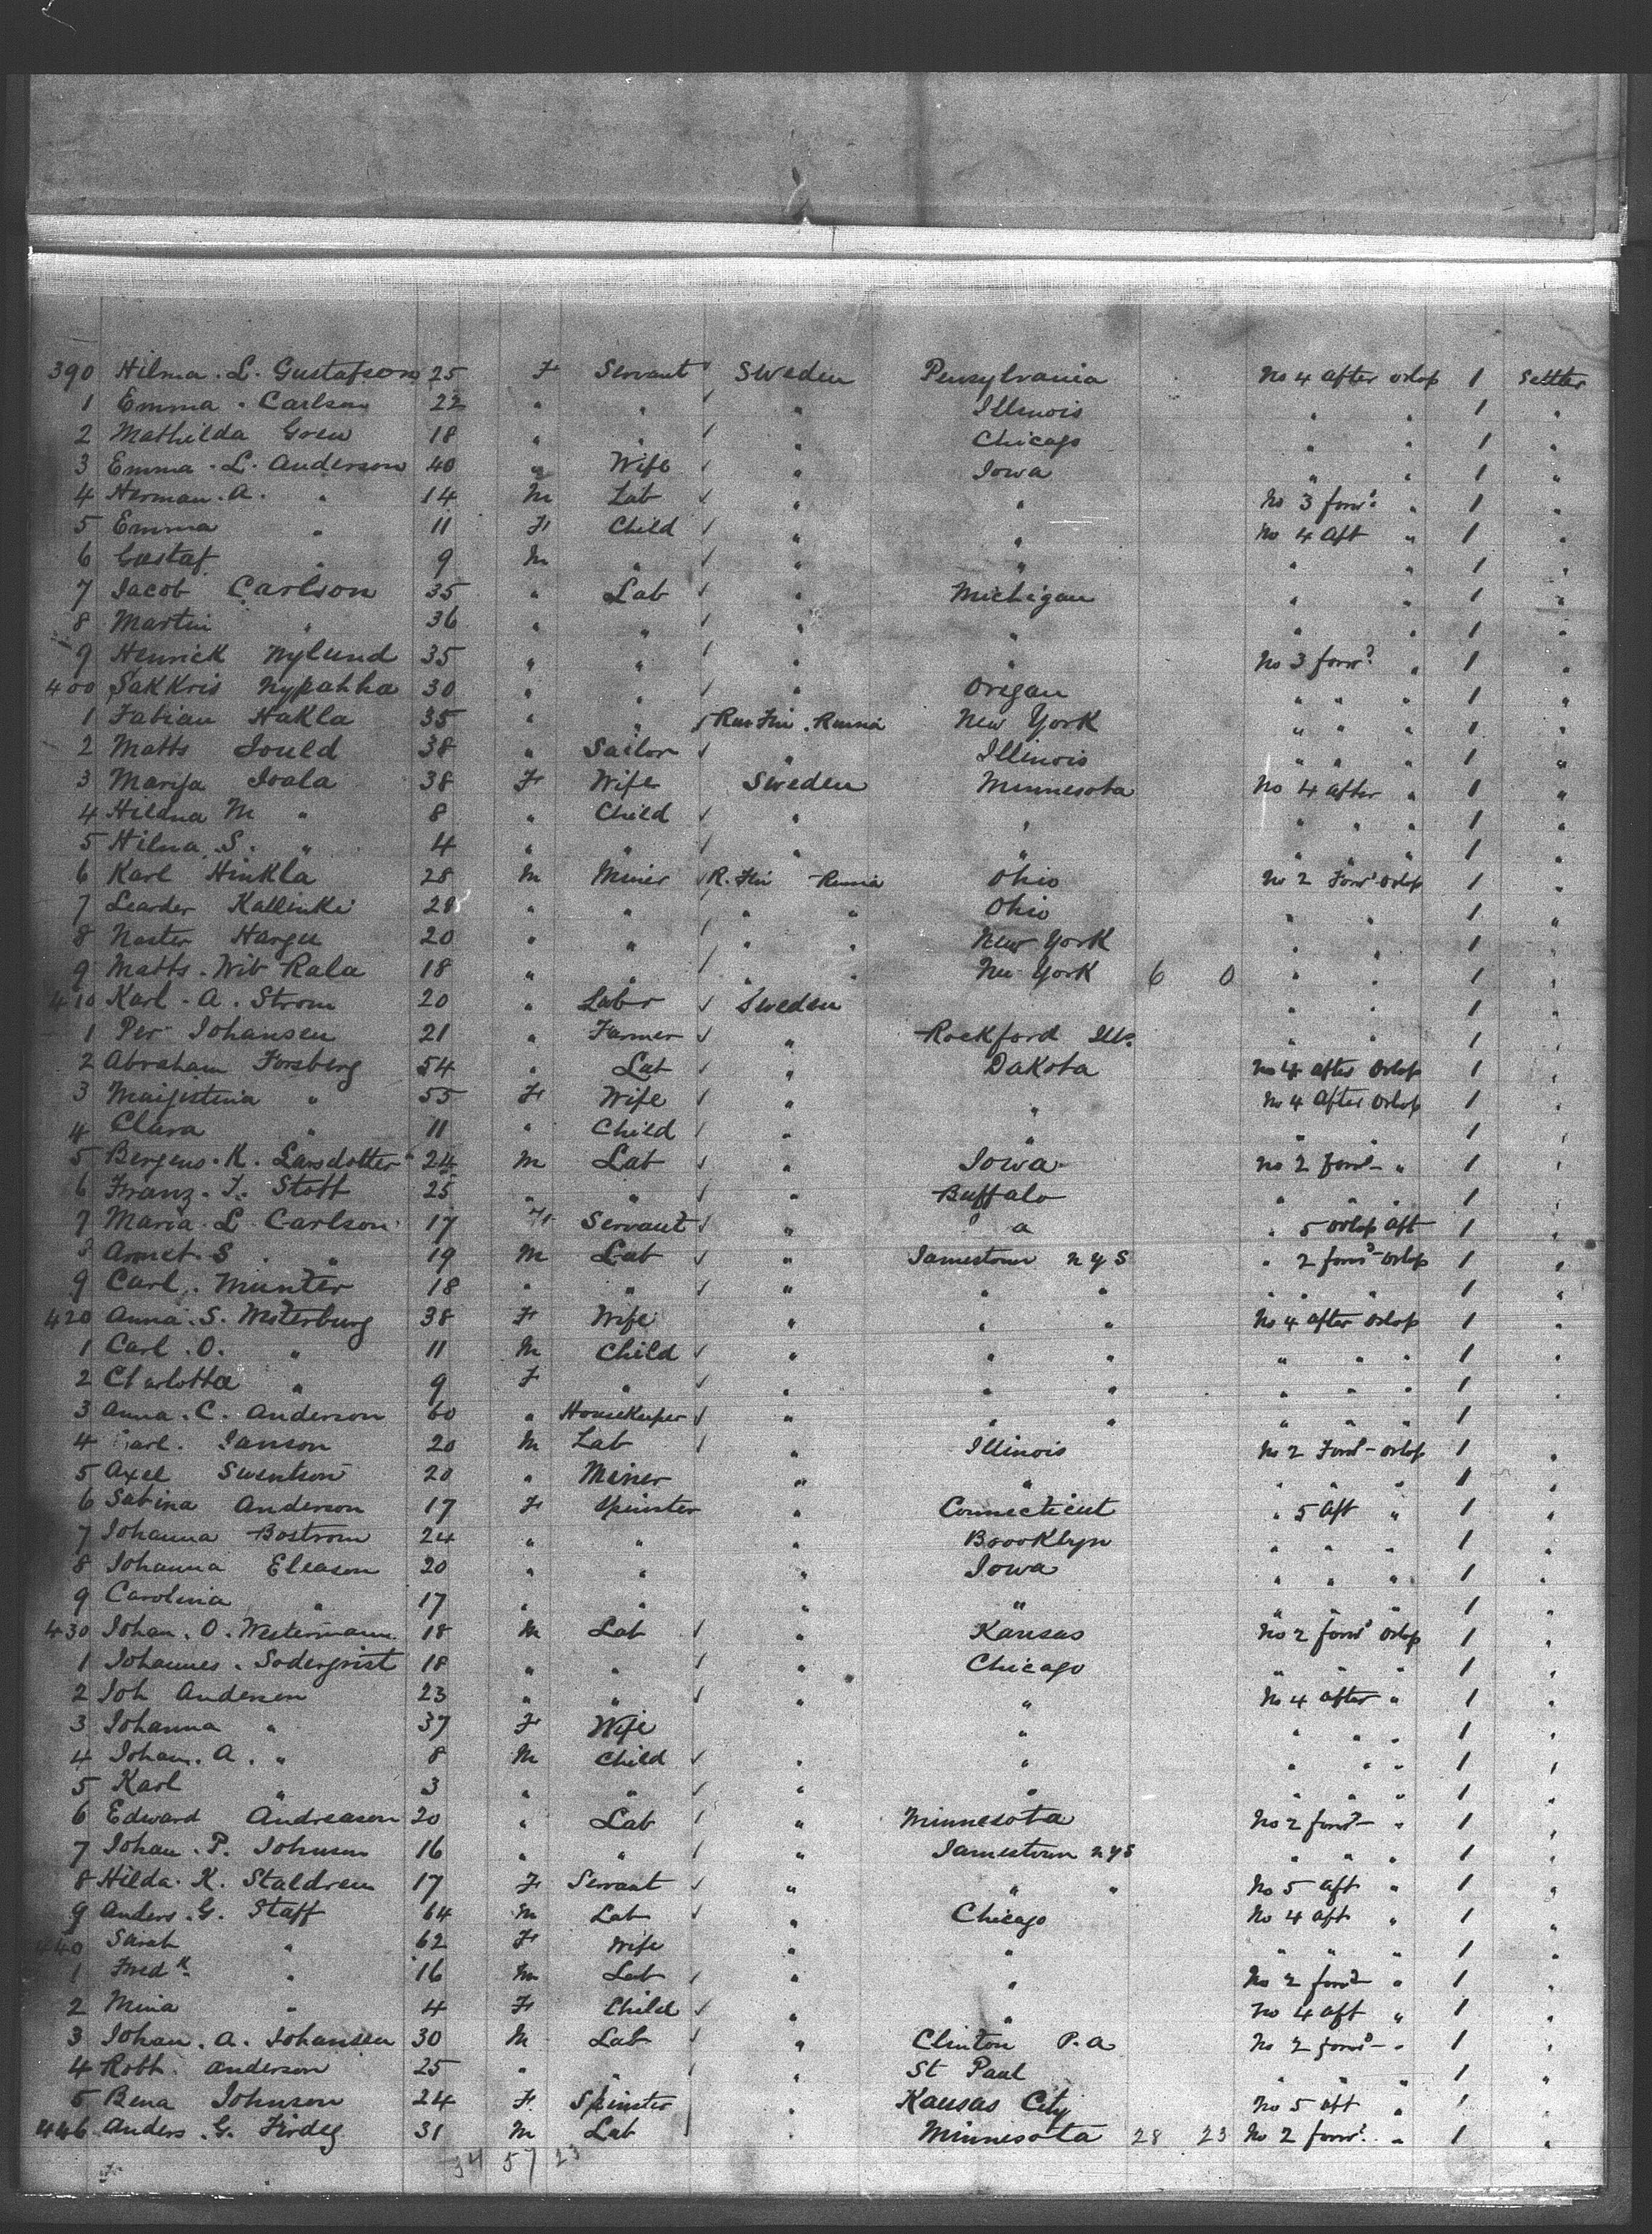 390 Hilma . L . Gustafson 25 F Servant Sweden Pensylvania No 4 after orlop 1 Settler
1 Emma . Carlson 22 " " " Illinois " " 1 "
2 Mathilda 18 " " " Chicago " " 1 "
3 Emma . L . Anderson 40 " Wife " Iowa " " 1 "
4 Herman . A . " 14 M Lab " " No 3 forwd " 1 "
5 Emma " 11 F Child " " No 4 Aft " 1 "
6 Gustaf " 9 M " " " " " 1 "
7 Jacob Carlson 35 " Lab " Michigan " " 1 "
8 Martin " 36 " " " " " " 1 "
9 Henrick Nylund 35 " " " " No 3 forwd " 1 "
400 Sakkris 30 " " " Oregan " " " 1 "
1 Fabian Hakla 35 " " Rus Fin . Russia New York " " " 1 "
2 Matts 38 " Sailor " Illinois " " " 1 "
3 Marija Ivala 38 F Wife Sweden Minnesota No 4 after " 1 "
4 Hildna M " 8 " Child " " " " " 1 "
5 Hilna . S . " 4 " " " " " " " 1 "
6 Karl Hinkla 28 M Miner R. Fin Russia Ohio No 2 Forwd Orlop 1 "
7 Leander Kallinki 28 " " " " Ohio " " 1 "
8 Nester 20 " " " " New York " " 1 "
9 Matts . Wib Rala 18 " " " " New York 6 0 " " 1 "
410 Karl . A . Strom 20 " Labr Sweden " " 1 "
1 Per Johansen 21 " Farmer " Rockford Ills. " " 1 "
2 Abraham Forsberg 54 " Lab " Dakota No 4 after Orlop 1 "
3 " 55 F Wife " " No 4 After Orlop 1 "
4 Clara " 11 " Child " " " " 1 "
5 . K . Larsdotter 24 M Lab " Iowa No 2 forwd " 1 "
6 Franz . J . Stott 25 " " " Buffalo " " " 1 "
7 Maria . L . Carlson 17 F Servant " a " 5 orlop aft 1 "
8 . S . " 19 M Lab " Jamestown N Y S " 2 forwd Orlop 1 "
9 Carl . Munter 18 " " " " " " " " 1 "
420 Anna . S . 38 F Wife " " " No 4 after Orlop 1 "
1 Carl . O . " 11 M Child " " " " " " 1 "
2 Charlotta " 9 F " " " " " " " 1 "
3 Anna . C . Anderson 60 " Housekeeper " " " " " " 1 "
4 Carl . Janson 20 M Lab " Illinois No 2 Forwd Orlop 1 "
5 Axel Swentson 20 " Miner " " " " " 1 "
6 Sabina Anderson 17 F Spinster " Connecticut " 5 aft " 1 "
7 Johanna Bostrom 24 " " " Brooklyn " " " 1 "
8 Johanna Eleason 20 " " " Iowa " " " 1 "
9 Carolina " 17 " " " " " " " 1 "
430 Johan . O . Westermann 18 M Lab " Kansas No 2 forwd Orlop 1 "
1 Johannes . Soderqrist 18 " " " Chicago " " " 1 "
2 Joh Andersen 23 " " " " No 4 after " 1 "
3 Johanna " 37 F Wife " " " " 1 "
4 Johan . A . " 8 M Child " " " " " 1 "
5 Karl " 3 " " " " " " " 1 "
6 Edward Andreason 20 " Lab " Minnesota No 2 forwd " 1 "
7 Johan . P . Johnson 16 " " " Jamestown N Y S " " " 1 "
8 Hilda . K . Staldren 17 F Servant " " " No 5 aft " 1 "
9 Anders . G . Staff 64 M Lab " Chicago No 4 aft " 1 "
440 Sarah " 62 F Wife " " " " " 1 "
1 Fredk " 16 M Lab " " No 2 forwd " 1 "
2 Mina " 4 F Child " " No 4 aft " 1 "
3 Johan . A . Johanssen 30 M Lab " Clinton P.a No 2 forwd " 1 "
4 Robt . Anderson 25 " " " St Paul " " " 1 "
5 Bena Johnson 24 F Spinster " Kansas City No 5 aft " 1 "
446 Anders . G . 31 M Lab " Minnesota 28 23 No 2 forwd " 1 "
34 57 23